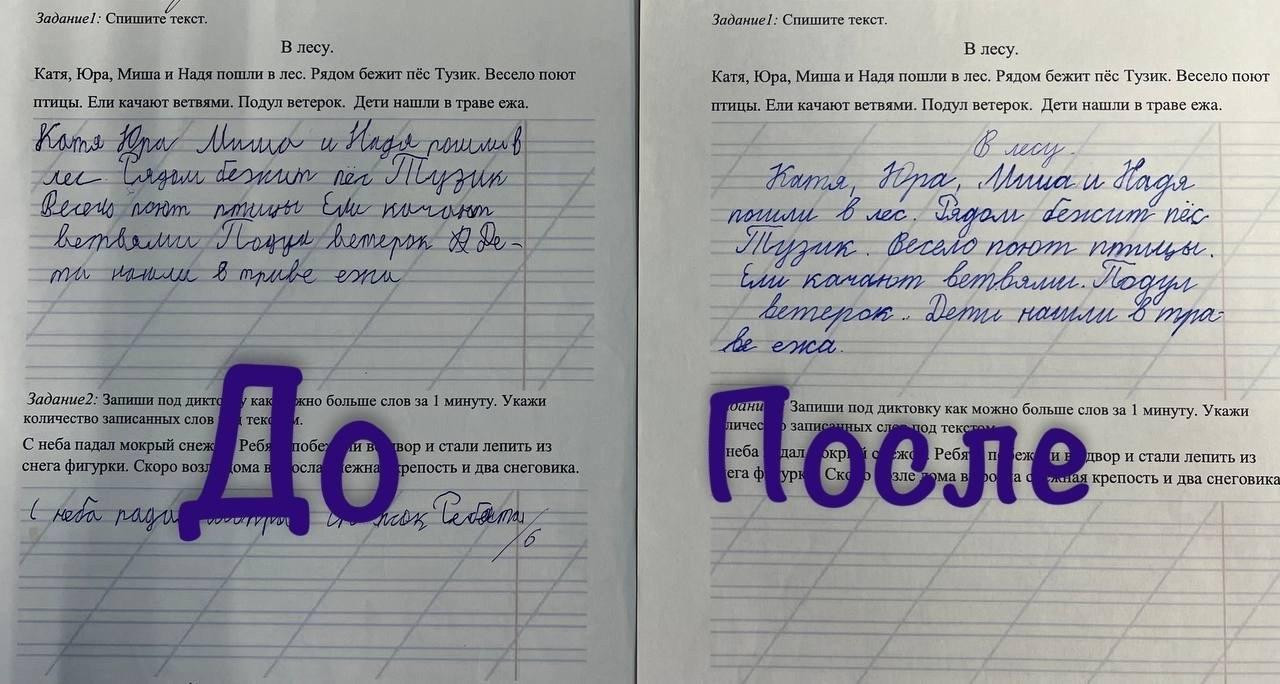 Задание1: Спишите текст.
В лесу.
Катя, Юра, Миша и Надя пошли в лес. Рядом бежит пёс Тузик. Весело поют
птицы. Ели качают ветвями. Подул ветерок. Дети нашли в траве ежа.
Катя Юра Миша и Надя пошли в
лес Рядом бежит пёс Тузик
Весело поют птицы Ели качают
ветвями Подул ветерок Де-
ти нашли в траве ежа
Задание2: Запиши под диктовку как можно больше слов за 1 минуту. Укажи
количество записанных слов под текстом.
С неба падал мокрый снежок. Ребята побежали во двор и стали лепить из
снега фигурки. Скоро возле дома выросла снежная крепость и два снеговика.
С неба падал Ребята
6
До
Задание1: Спишите текст.
В лесу.
Катя, Юра, Миша и Надя пошли в лес. Рядом бежит пёс Тузик. Весело поют
птицы. Ели качают ветвями. Подул ветерок. Дети нашли в траве ежа.
В лесу.
Катя, Юра, Миша и Надя
пошли в лес. Рядом бежит пёс
Тузик. Весело поют птицы.
Ели качают ветвями. Подул
ветерок. Дети нашли в тра-
ве ежа.
Запиши под диктовку как можно больше слов за 1 минуту. Укажи
количество записанных слов под текстом.
неба падал мокрый снежок. Ребята побежали во двор и стали лепить из
снега фигурки. Скоро возле дома выросла снежная крепость и два снеговика
После